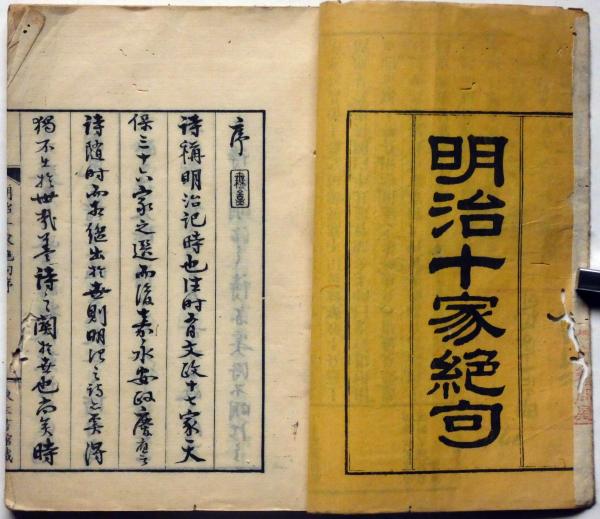 明治十家絶句
序
詩稱明治記時也往時有文政十七家天
保三十六家之選而後嘉永安政慶應之
詩隨時而亦繼出於世則明治之詩亦奚得
獨不出於世哉蓋詩之関於世也尚矣時